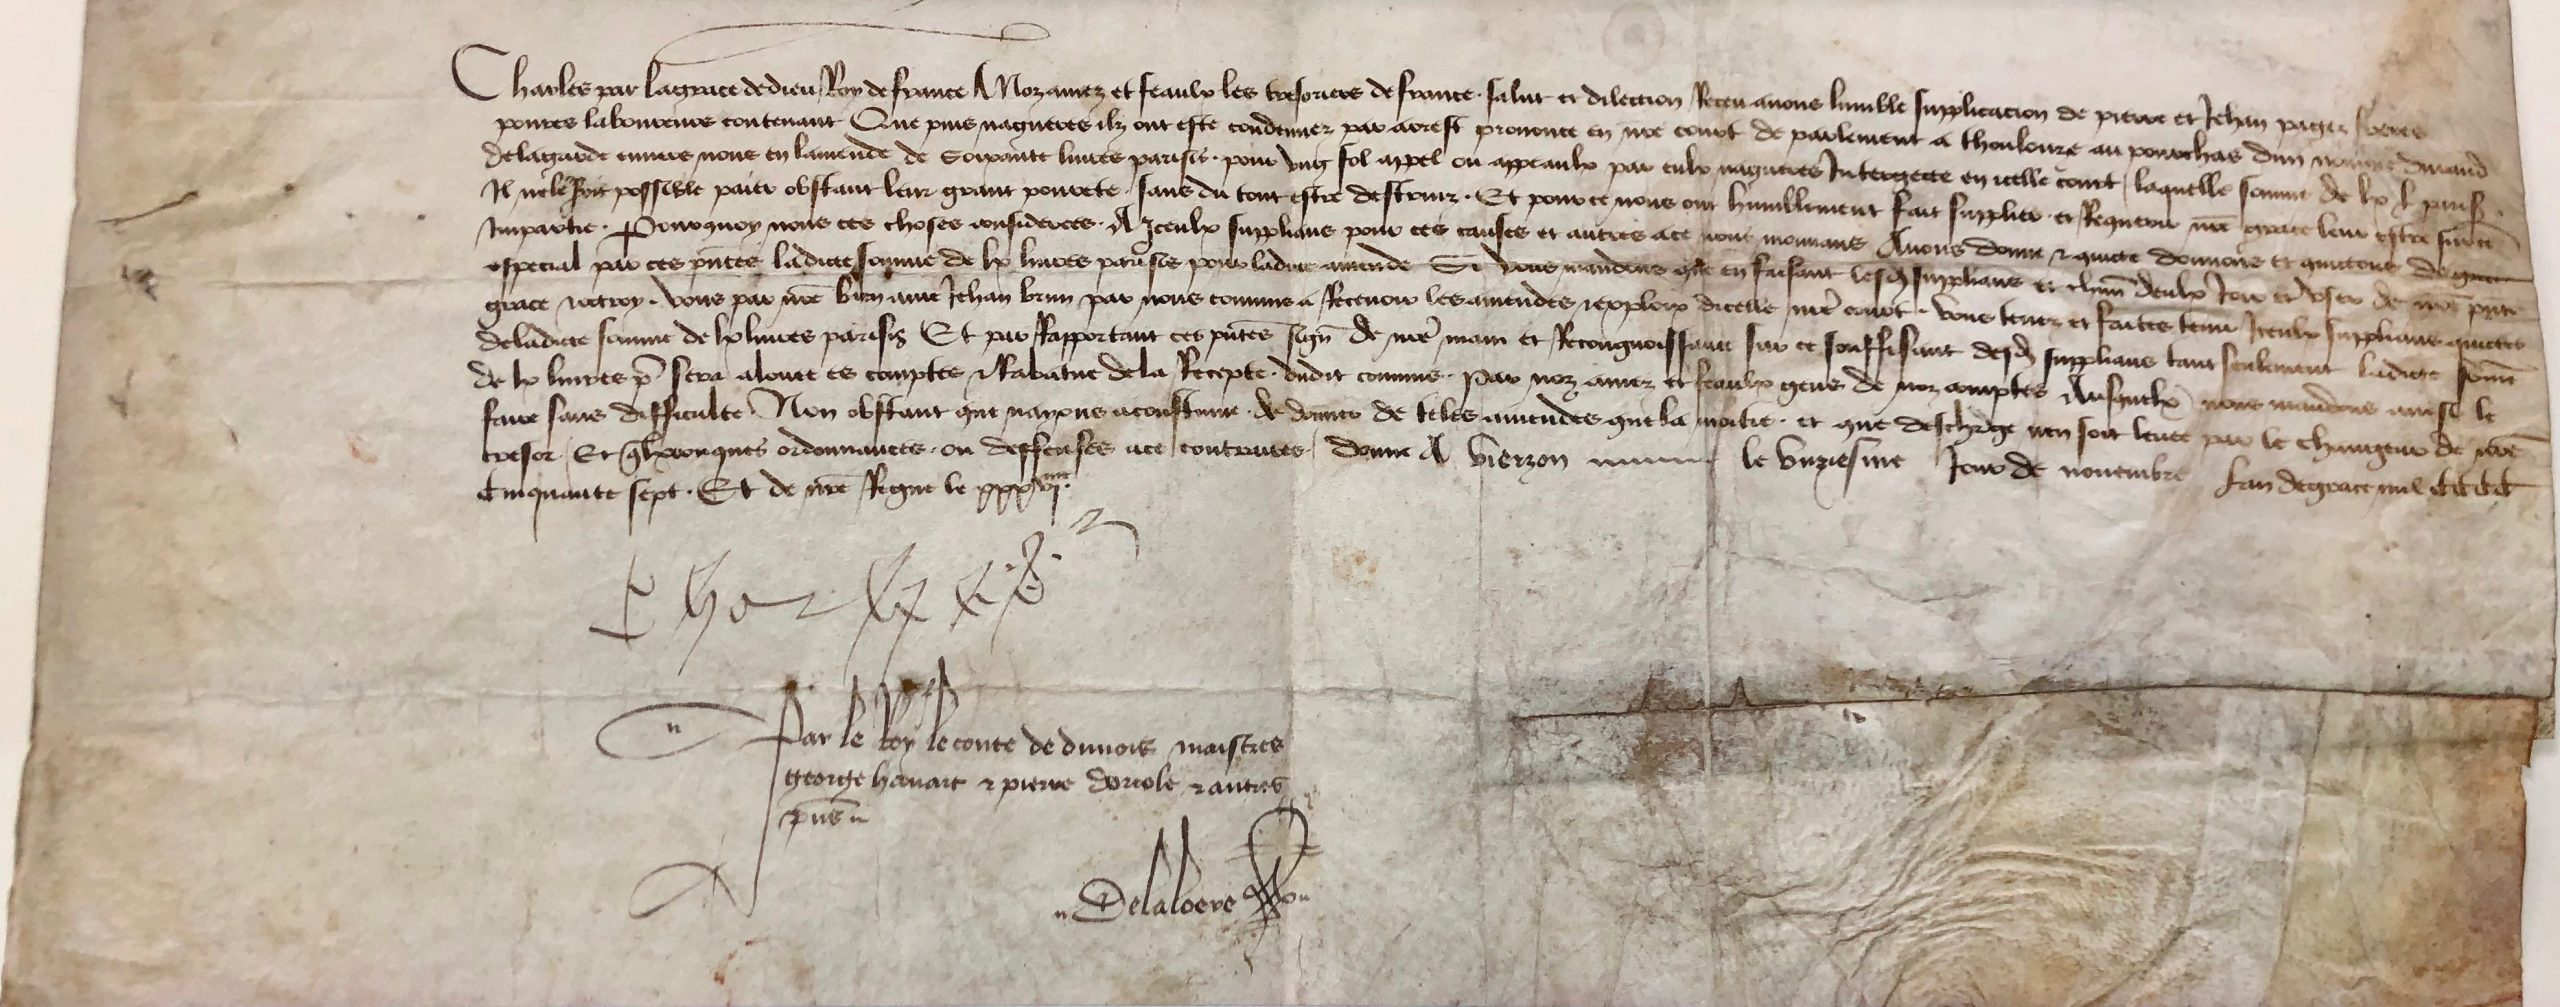 Charles par la grace de dieu Roy de france A Noz amez et feaulx les tresoriers de france salut et dilection Receu avons lumble supplicacion de pierre et Jehan pagez freres
povres laboureurs contenant Que puis nagueres ilz ont este condennez par arrest prononce en nre court de parlement a thoulouze au pourchas dun nomme durand
delagarde envers nous en lamende de Soixante livres parisis pour ung fol appel ou appeaulx par eulx nagueres Intergecte en icelle court laquelle somme de lx l paris
Il ne le soit possible paier obstant leur grant povrete sans du tout estre destruiz Et pource nous ont humblement fait supplier et Requerir nre grace leur estre sur ce
Impartie Pourquoy nous ces choses considerees A Iceulx supplians pour ces causes et autres ace nous mouvans Avons donne et quicte donnons et quictons de grace
especial par ces pntes ladicte somme de lx livres parisis pour ladicte amende Si vous mandons que en faisant lesd supplians et chun deulx Joir et user de nre pnte
grace et ottroy vous par nre bien ame Jehan brun par nous commis a Recevoir les amendes et exploiz dicelle nre court vous tenez et faictes tenir Iceulx supplians quictes
deladicte somme de lx livres parisis Et par Rapportant ces pntes sign de nre main et Recongnoissance sur ce souffisant desd supplians tant seulement ladicte somme
de lx livres p sera alouee es comptes et Rabatue dela Recepte dudit commis Par noz amez et feaulx gens de noz comptes Ausquelx nous mandons ainsi le
faire sans difficulte Non obstant que nayons acoustume de donner de telles amendes que la moitie et que descharge nen soit levee par le changeur de nre
tresor Et qlxconques ordonnances ou deffenses ace contraires donne A Vierzon le unziesme Jour de novembre Lan de grace mil CCCC
Cinquante sept Et de nre Regne le xxxvjme
Charles
Par le Roy le conte de dunois maistres
george havart et pierre doriole et autres
pns
Delaloere